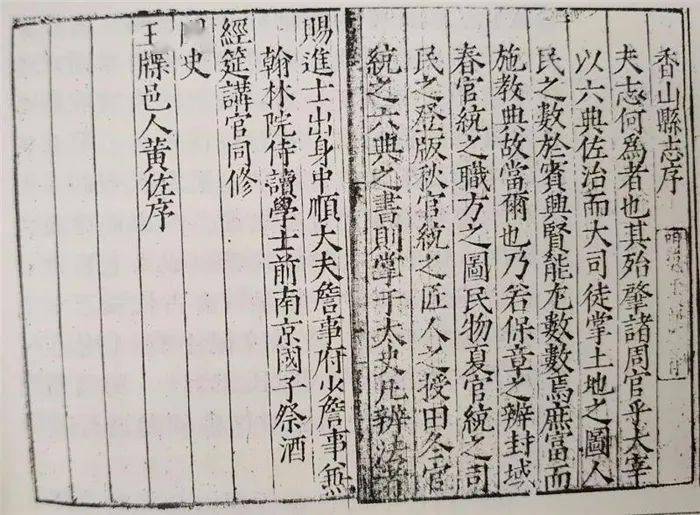 香山縣志序
夫志何為者也其殆肇諸周官乎大宰
以六典佐治而大司徒掌土地之圖人
民之數於賓興賢能尤數數焉庶富而
施教典故當爾也乃若保章之辨封域
春官統之職方之圖民物夏官統之司
民之登版秋官統之匠人之授田冬官
統之六典之書則掌于太史凡辨法者
賜進士出身中順大夫詹事府少詹事兼
翰林院侍讀學士前南京國子祭酒
經筵講官同修
史
玉牒邑人黃佐序